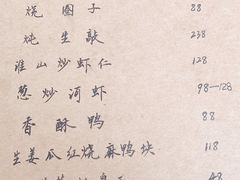 烧圈子 88
炖生敲 238
淮山炒虾仁 128
葱炒河虾 98—128
香酥鸭 88
生姜瓜红烧麻鸭块 118
48